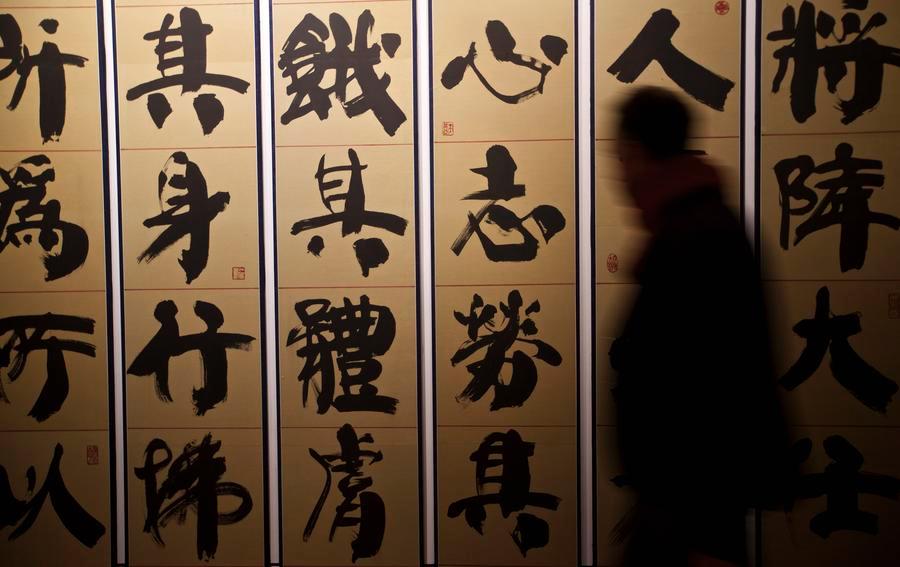 將降大任
人
心志勞其
餓其體膚
其身行拂
所為所以